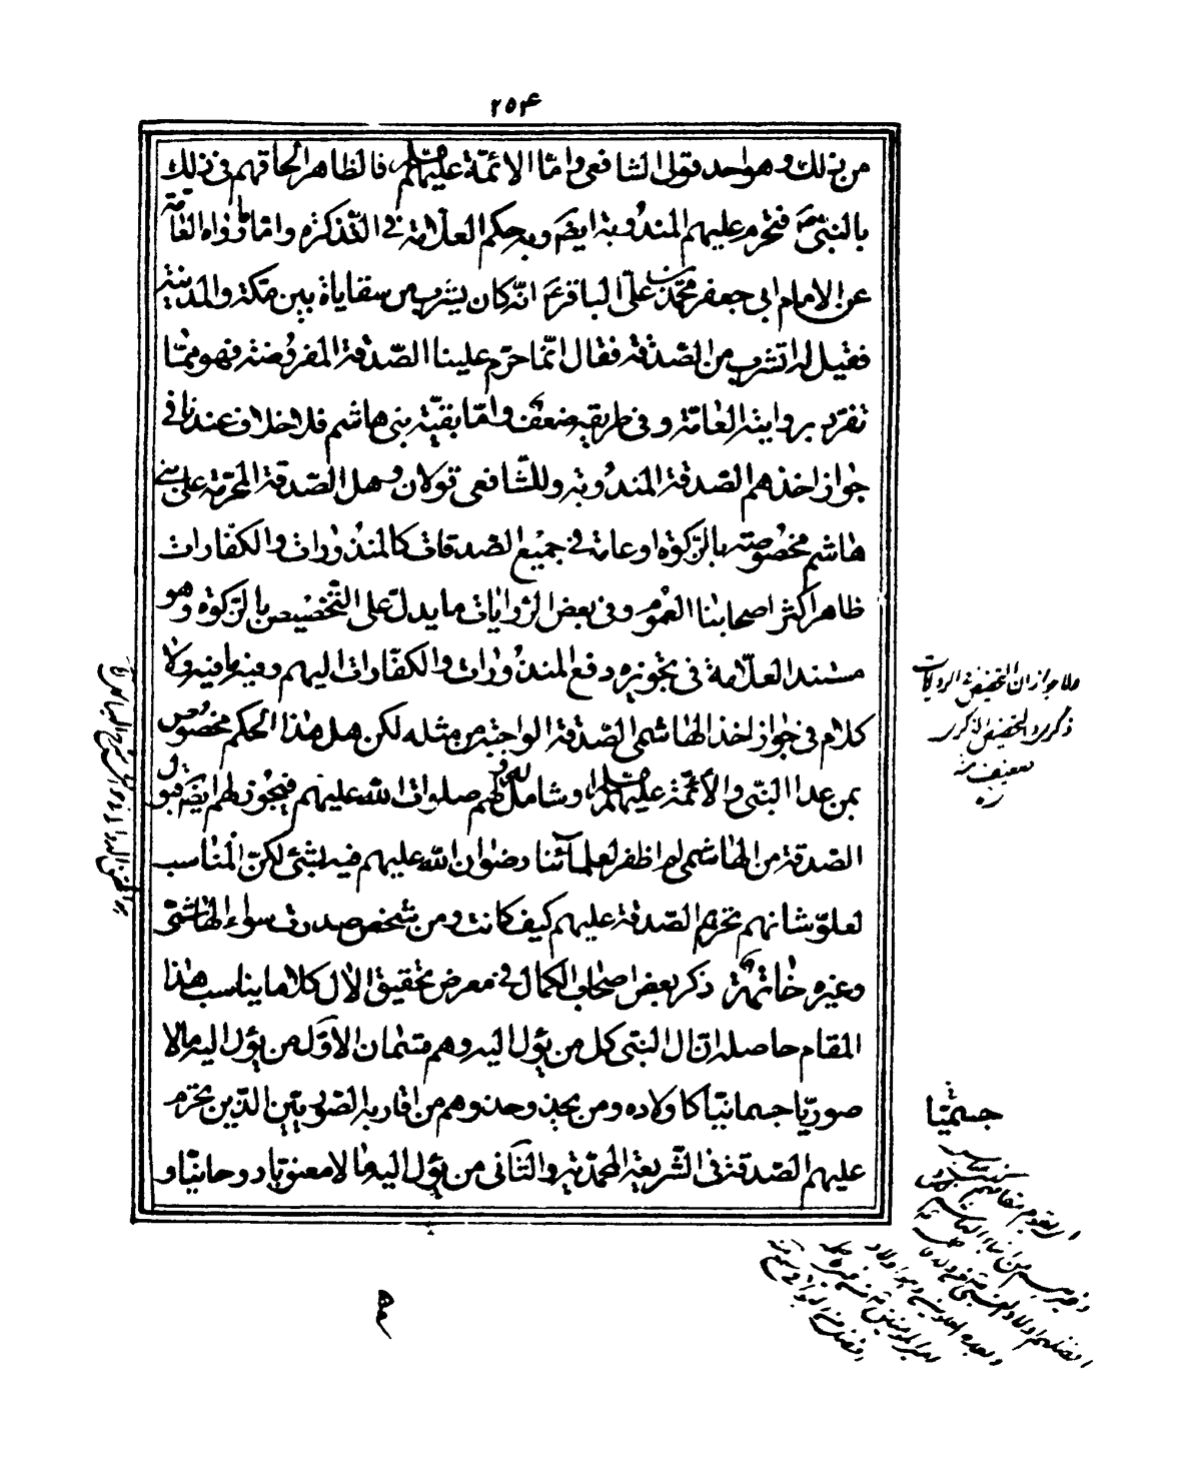 ٢٥۴
من ذلك وهو احد قولى الشافعى واما الائمّة عليهم السلم فالظاهر الحاقهم فى ذلك
بالنبىّ ص فتحرم عليهم المندوبة ايضَ وبه حكم العلّامة فى التذكرة واما ما رواه العامّة
عن الامام ابى جعفر محمّد بن علىّ الباقر ع انّه كان يشرب من سقايات بين مكة والمدينة
فقيل له اتشرب من الصّدقة فقال انّما حرّم علينا الصّدقة المفروضة فهو ممّا
تفرّد بروايته العامّة وفى طريقه ضعف وامّا بقيّة بنى هاشم فلا خلاف عندنا فى
جواز اخذهم الصّدقة المندوبة وللشّافعى قولان وهل الصّدقة المحرّمة على بنى
هاشم مخصوصة بالزّكوة او عامة فى جميع الصّدقات كالمنذورات والكفّارات
ظاهر اكثر اصحابنا العموم وفى بعض الرّوايات ما يدلّ على التّخصيص بالزّكوة وهو
مستند العلّامة فى تجويزه دفع المنذورات والكفّارات اليهم وفيه ما فيه ولا
كلام فى جواز اخذ الهاشمى الصّدقة الواجبة من مثله لكن هل هذا الحكم مخصوص
بمن عدا النبّى والأئمّة عليهم السلم او شامل له ولهم صلوات الله عليهم فيجوز لهم ايضَ قبول
الصّدقة من الهاشمى لم اظفر لعلمآئنا رضوان الله عليهم فيه بشئ لكنّ المناسب
لعلوّ شانهم تحريم الصّدقة عليهم كيف كانت ومن اى شخص صدرت سواء الهاشمىّ
وغيره خاتمة ذكر بعض اصحاب الكمال فى معرض تحقيق الآل كلاما يناسب هذا
المقام حاصله ان آل النبّى كل من يؤل اليه وهم قسمان الاوّل من يؤل اليه مآلا
صوريّا جسمانيّا كاولاده ومن يحذو حذوهم من اقاربه الصّوريّين الّذين يحرّم
عليهم الصّدقة فى الشّريعة المحمّديّة والثّانى من يؤل اليه مآلا معنويّا روحانيّا و
جسميّا